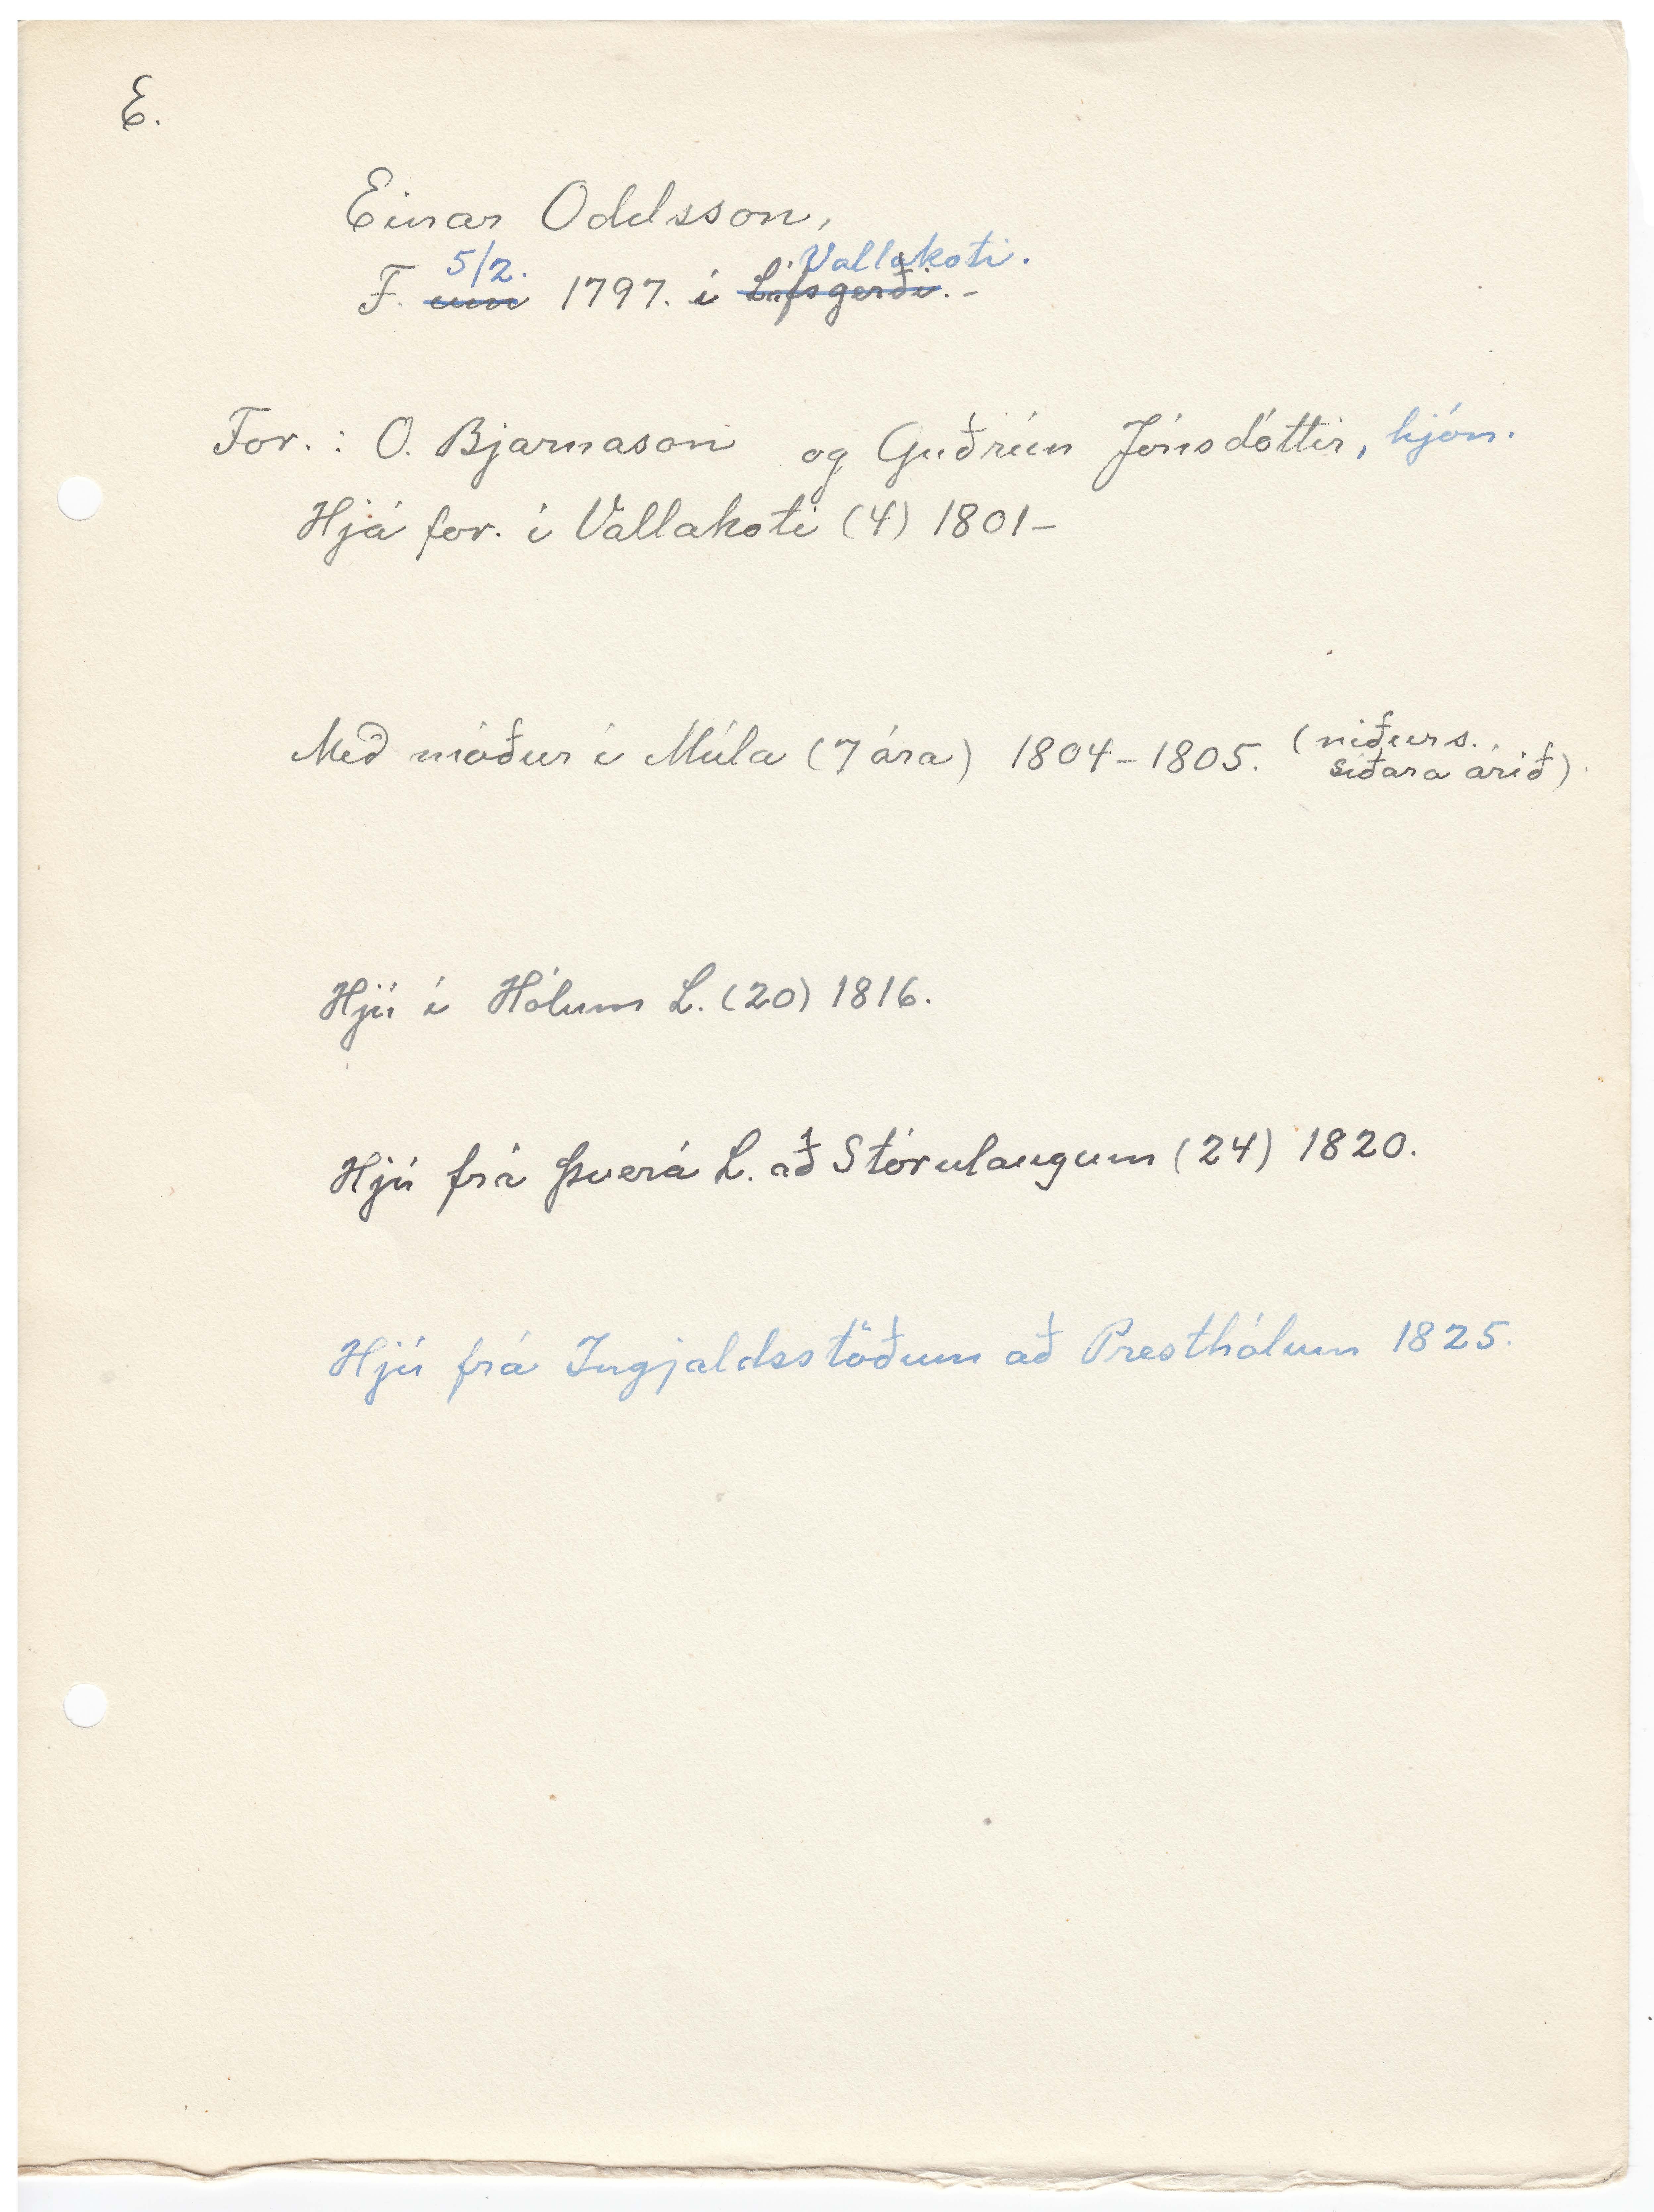 E.
Einar Oddsson,
5/2. Vallakoti.
F. um 1797. í Lífsgerði. -
For.: O. Bjarnason og Guðrún Jónsdóttir, hjón.
Hjá for. í Vallakoti (4) 1801-
Með móður í Múla (7 ára) 1804-1805. (niðurs.
síðara árið).
Hjú í Hólum L. (20) 1816.
Hjú frá Þverá L. að Stórulaugum (24) 1820.
Hjú frá Ingjaldsstöðum að Presthólum 1825.